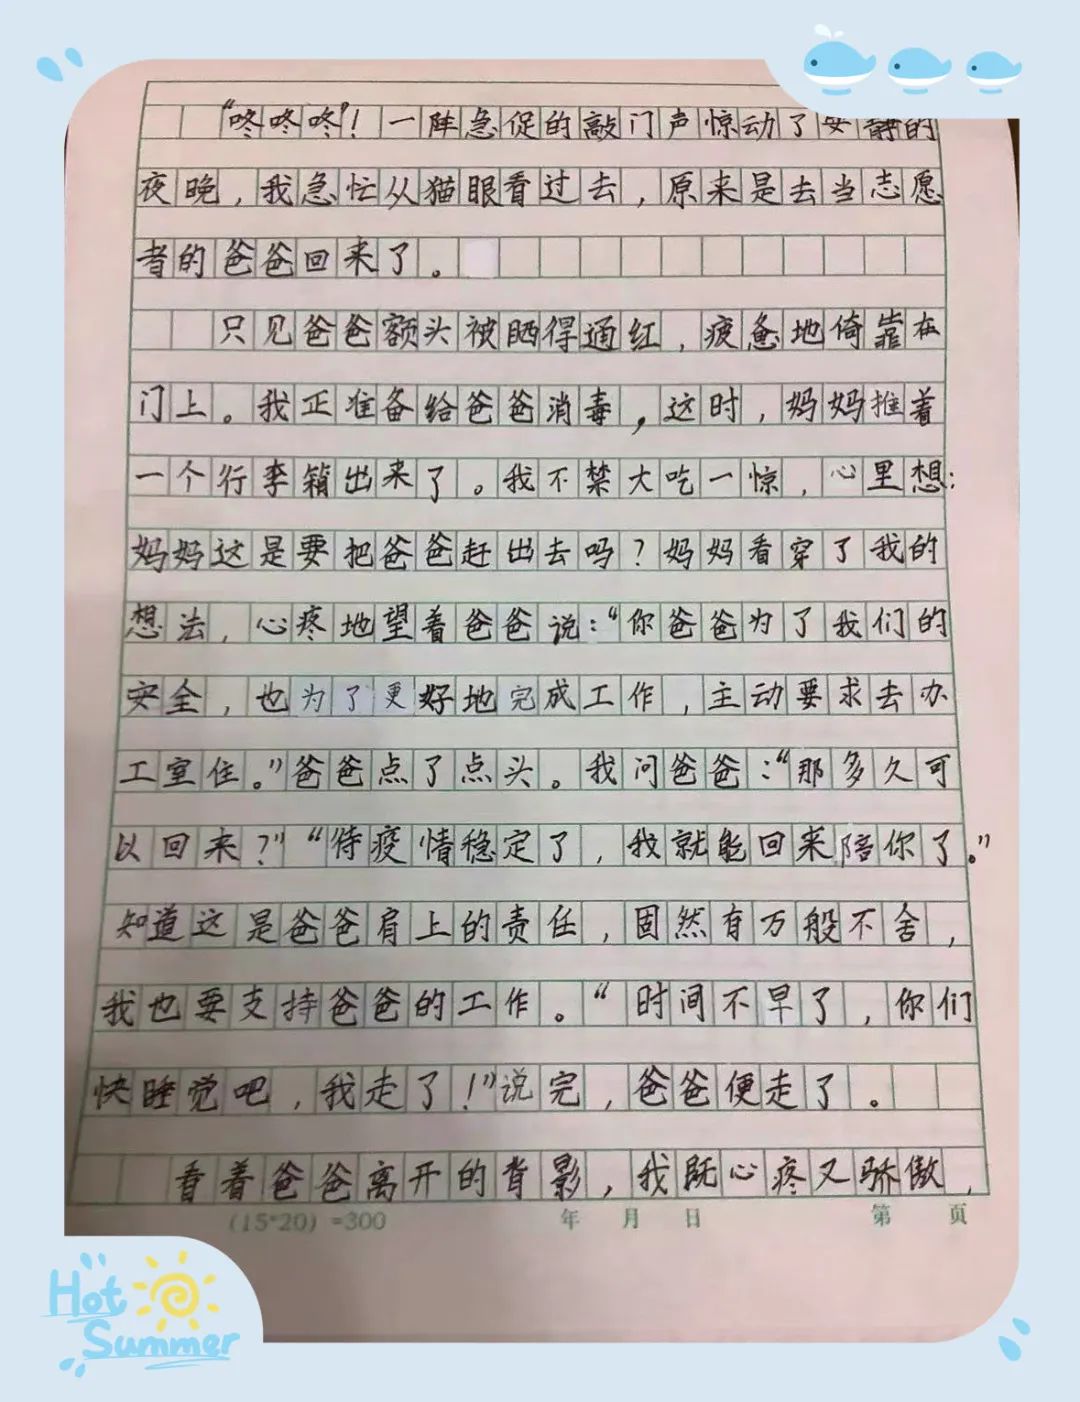 “咚咚咚”！一阵急促的敲门声惊动了安静的
夜晚，我急忙从猫眼看过去，原来是去当志愿
者的爸爸回来了。
只见爸爸额头被晒得通红，疲惫地倚靠在
门上。我正准备给爸爸消毒，这时，妈妈推着
一个行李箱出来了。我不禁大吃一惊，心里想：
妈妈这是要把爸爸赶出去吗？妈妈看穿了我的
想法，心疼地望着爸爸说：“你爸爸为了我们的
安全，也为了更好地完成工作，主动要求去办
工室住。”爸爸点了点头。我问爸爸：“那多久可
以回来？”“待疫情稳定了，我就能回来陪你了。”
知道这是爸爸肩上的责任，固然有万般不舍，
我也要支持爸爸的工作。“时间不早了，你们
快睡觉吧，我走了！”说完，爸爸便走了。
看着爸爸离开的背影，我既心疼又骄傲，
(15*20)=300 年 月 日 第 页
Hot
Summer